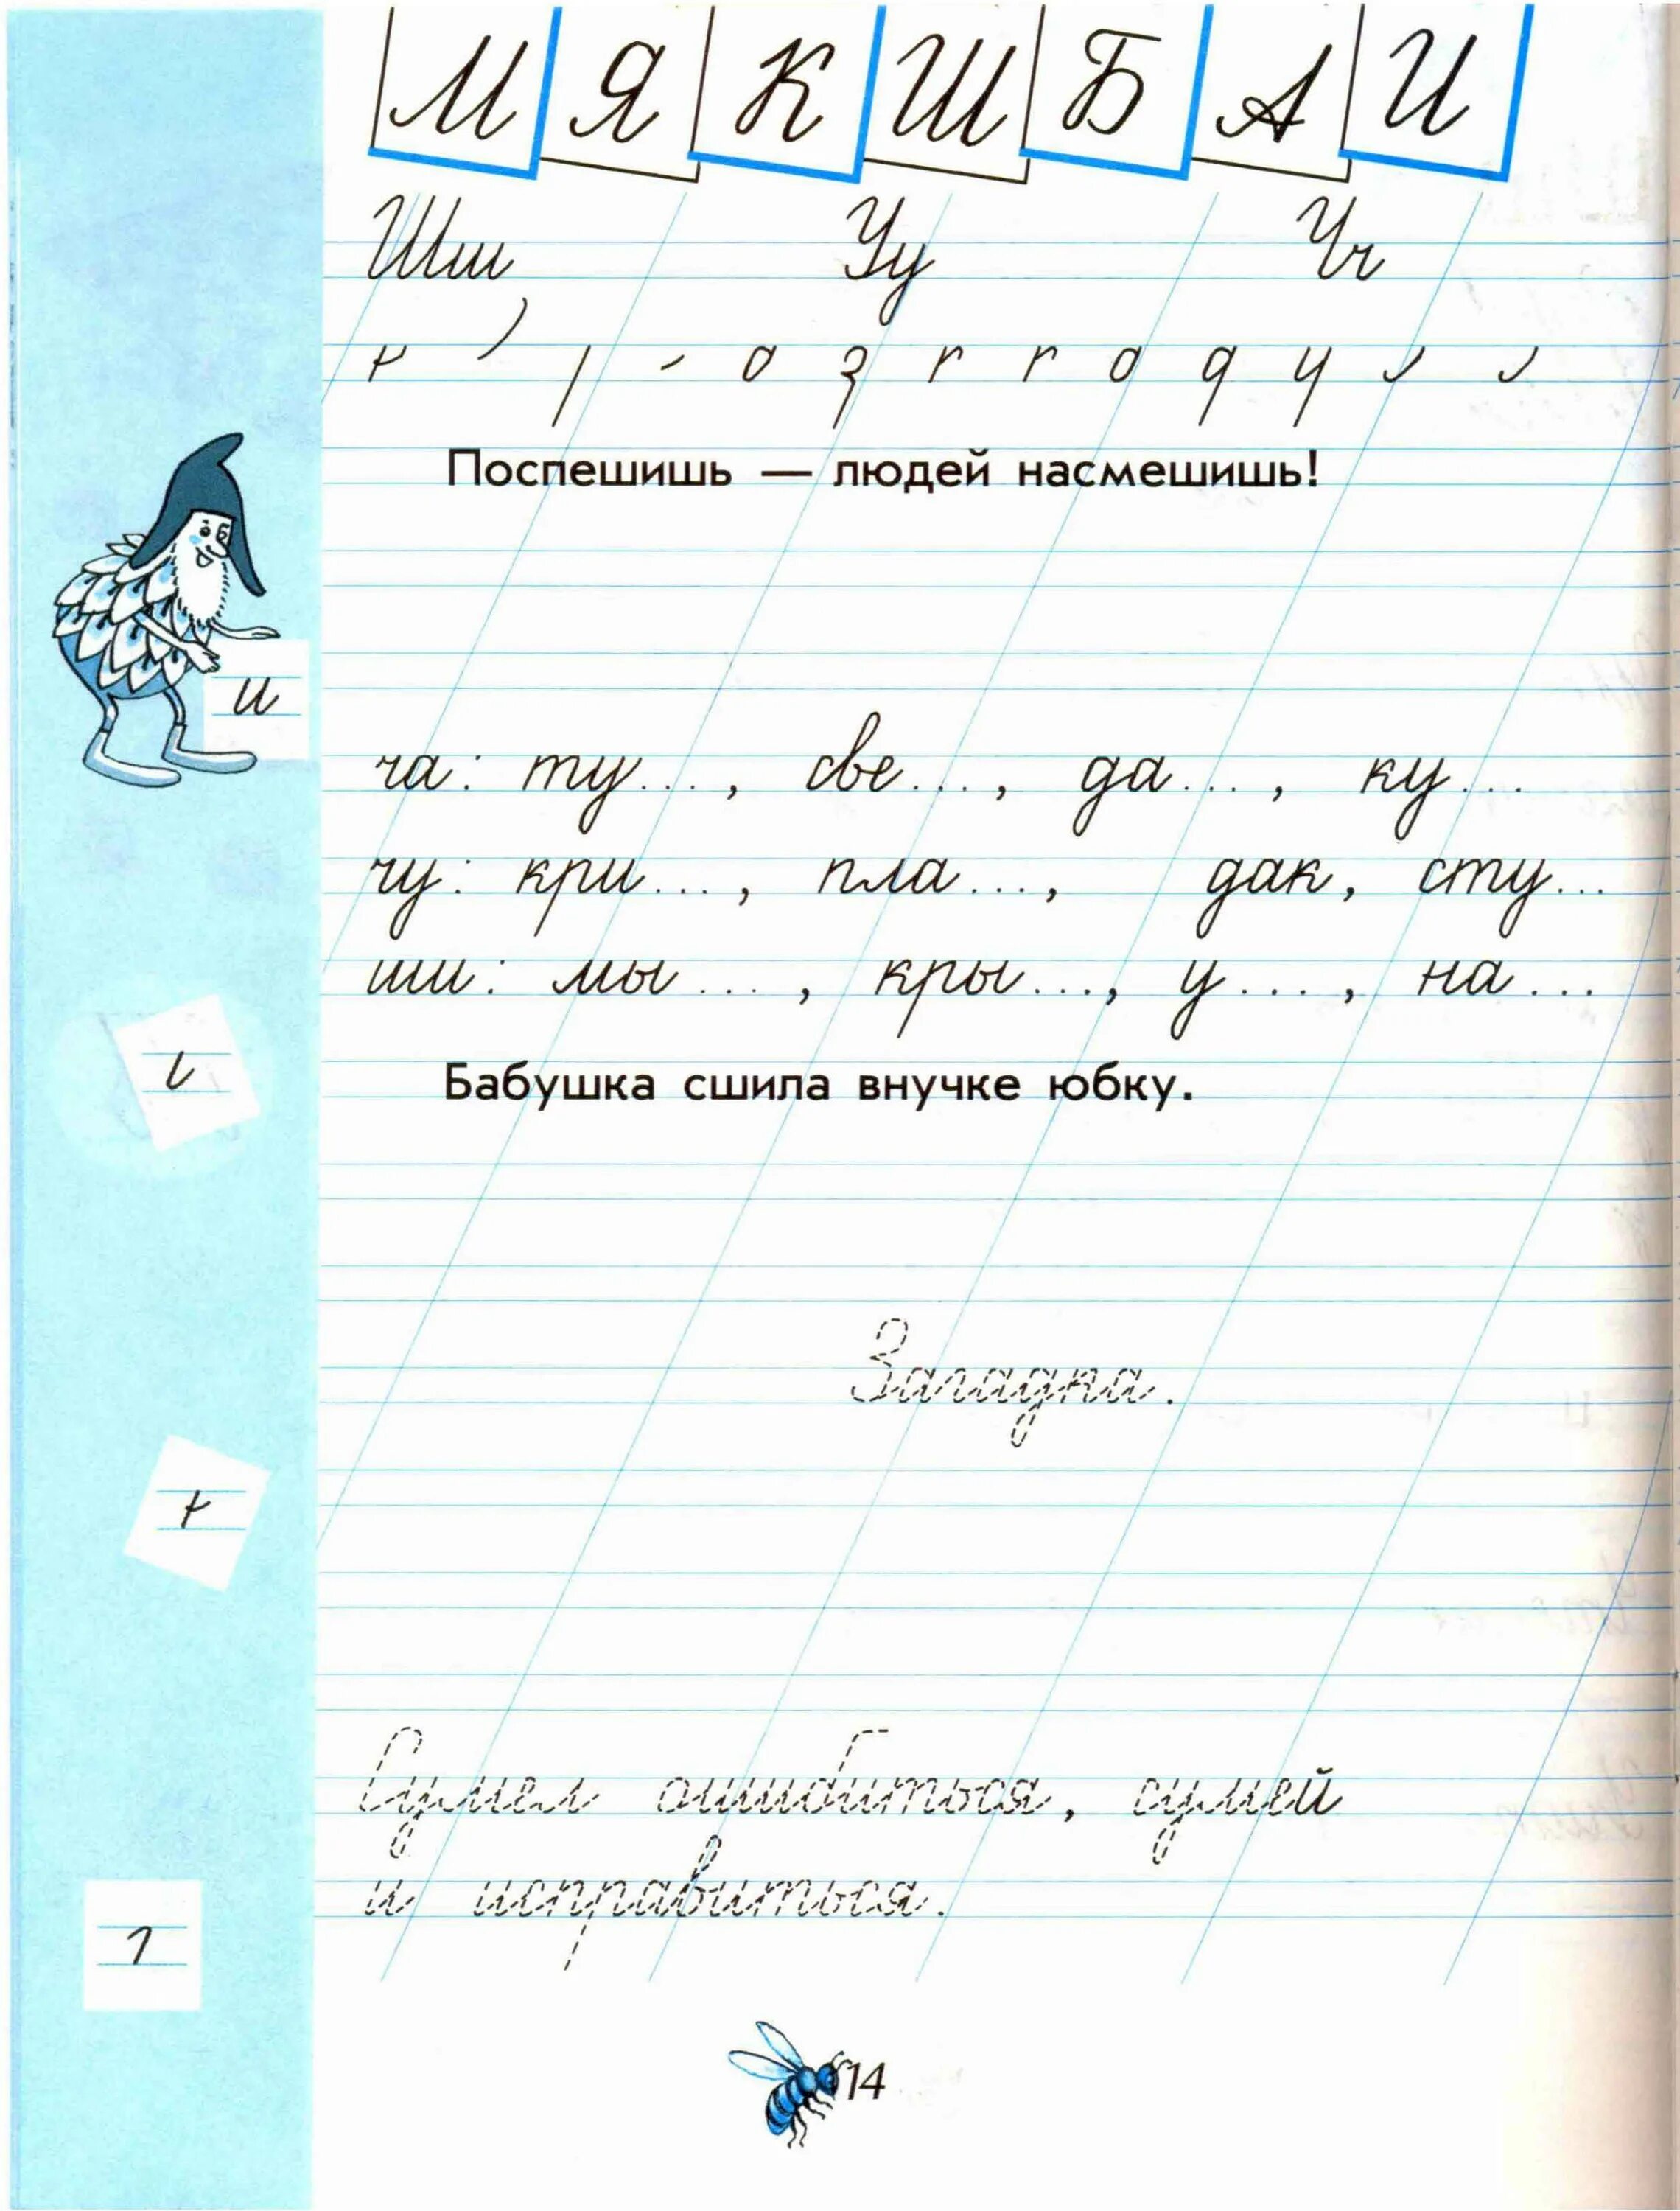 М Я К Ш Б А И
Шш Уу Чч
Поспешишь — людей насмешишь!
и
ча: ту..., све..., да..., ку...
чу: кри..., пла..., дак, сту...
ши: мы..., кры..., у..., на...
Бабушка сшила внучке юбку.
Загадка.
Сумел ошибиться, сумей
и исправиться.
14